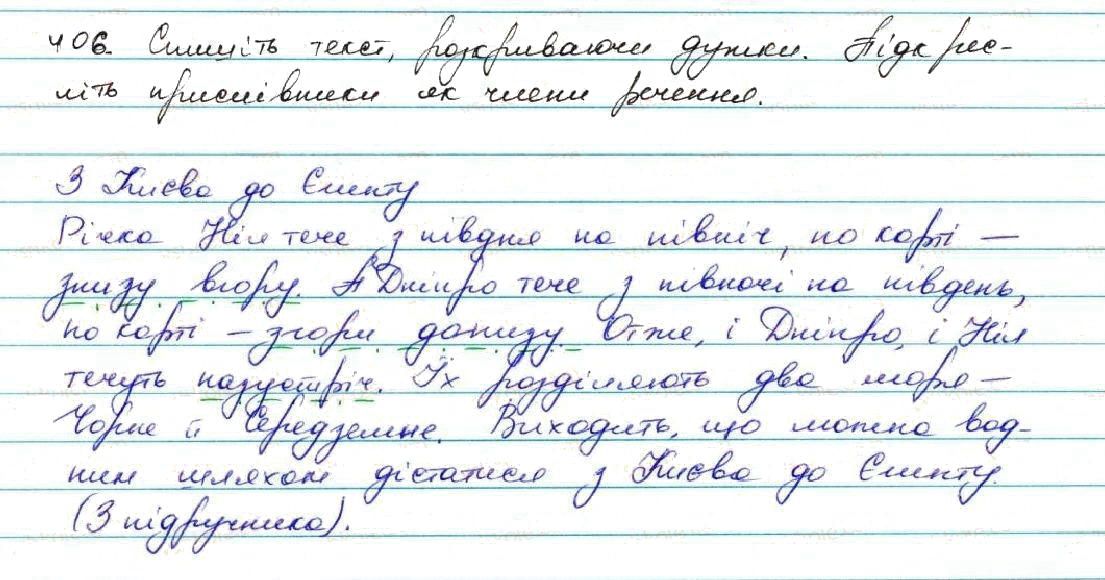 406. Спишіть текст, розкриваючи дужки. Підкрес-
літь прислівники як члени речення.
З Києва до Єгипту
Річка Ніл тече з півдня на північ, по карті —
знизу вгору. А Дніпро тече з півночі на південь,
по карті – згори донизу. Отже, і Дніпро, і Ніл
течуть назустріч. Їх розділяють два моря –
Чорне й Середземне. Виходить, що можна вод-
ним шляхом дістатися з Києва до Єгипту.
(З підручника).